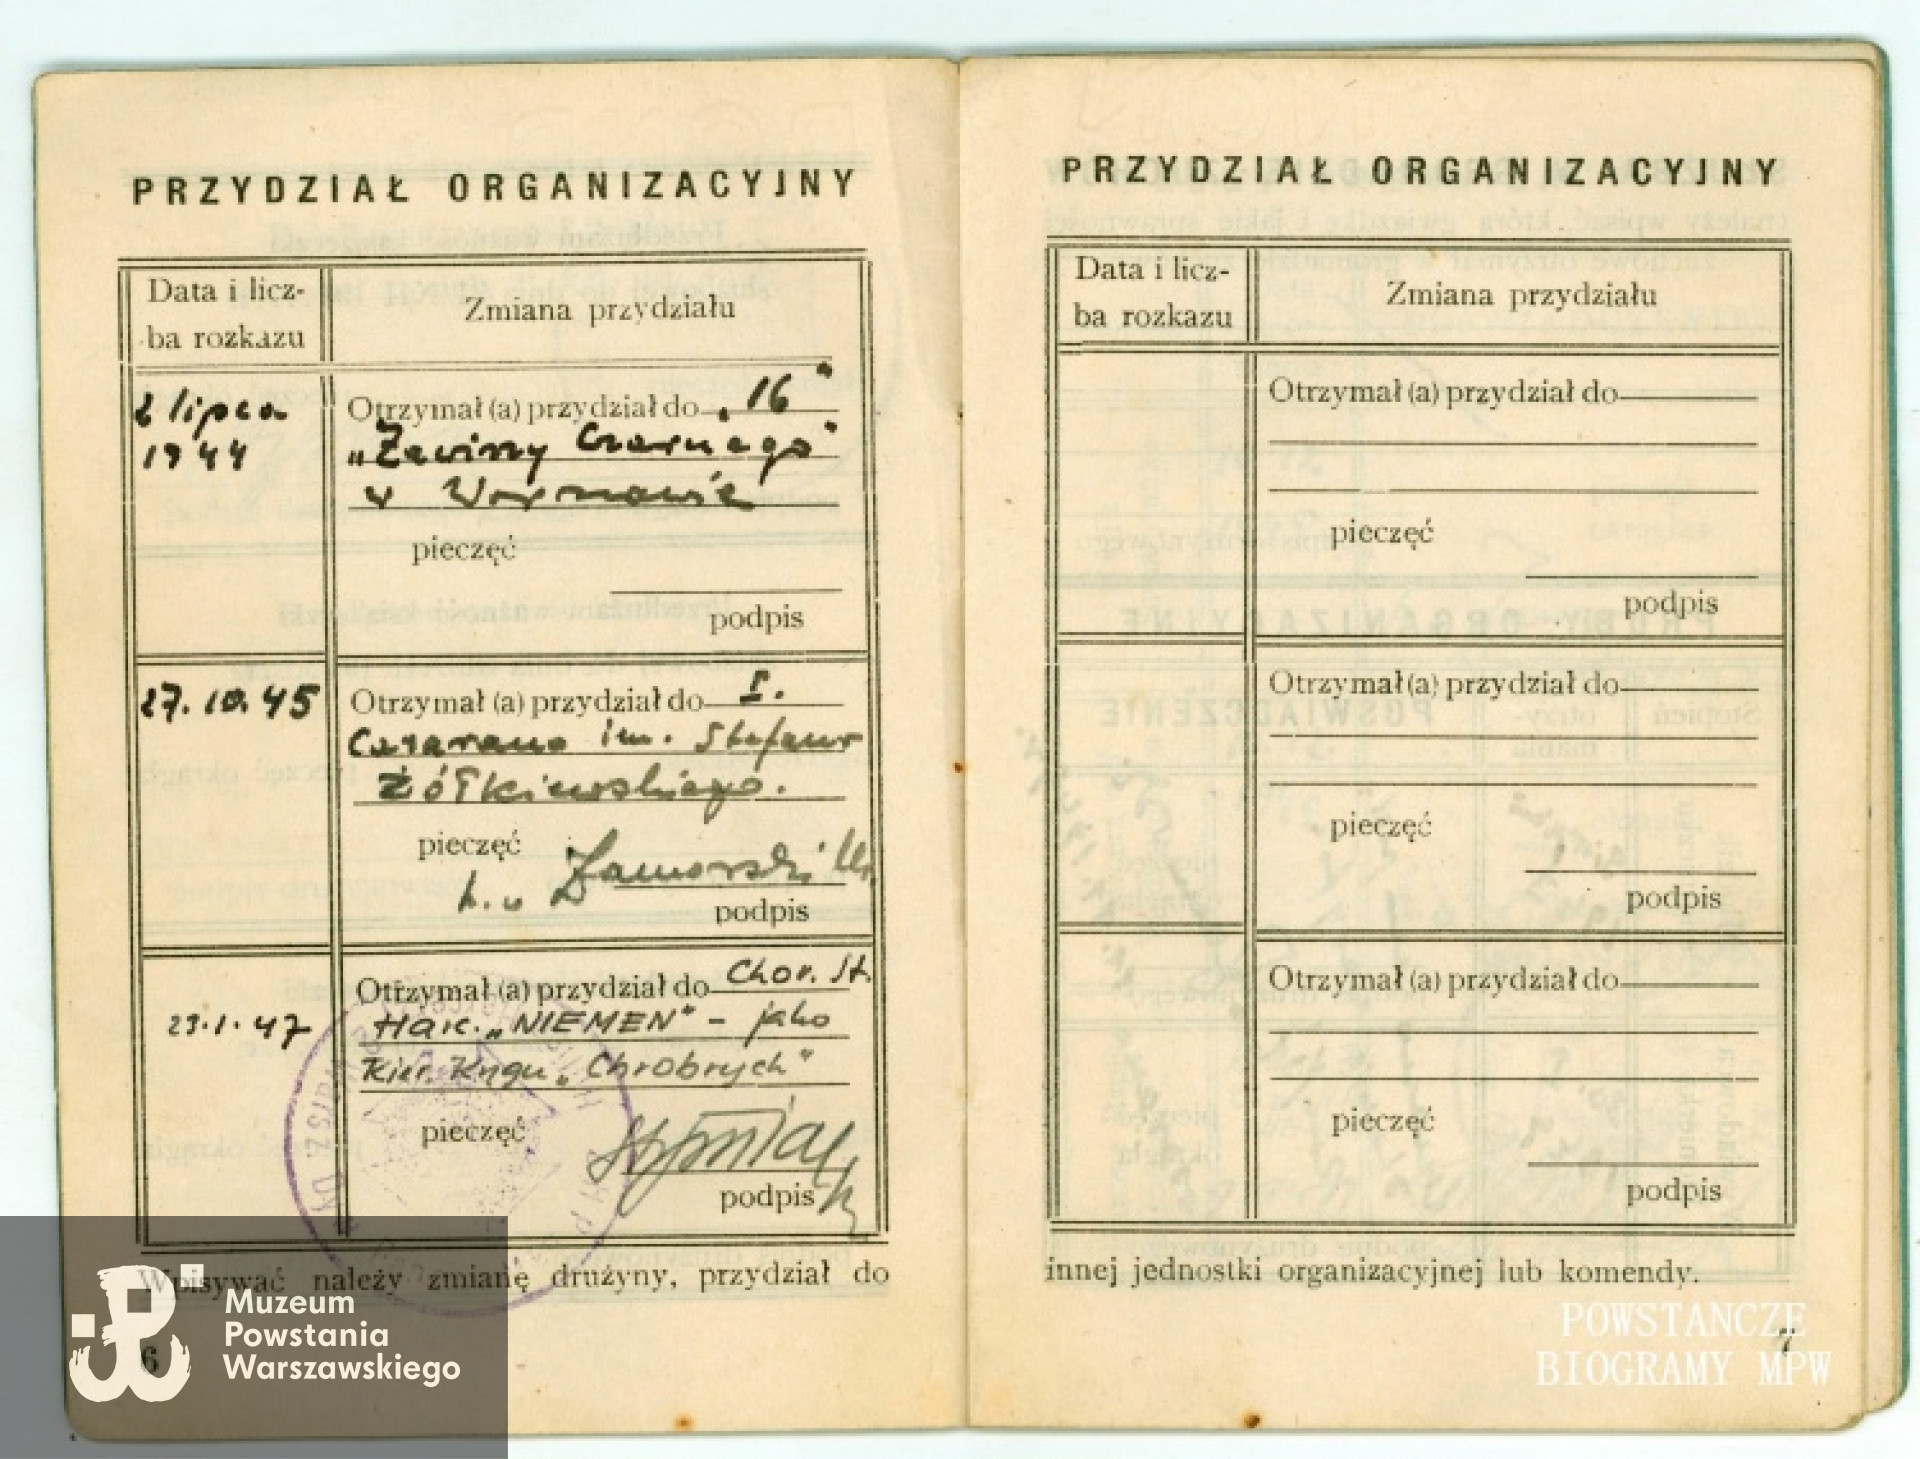 PRZYDZIAŁ ORGANIZACYJNY
Data i licz-
ba rozkazu
Zmiana przydziału
2 lipca
1944
Otrzymał (a) przydział do „16"
„Zawiszy Czarnego"
w Warszawie
pieczęć
podpis
27.10.45
Otrzymał (a) przydział do I.
im. Stefana
Żółkiewskiego.
pieczęć
Zamorski
podpis
23.1.47
Otrzymał (a) przydział do Chor. St.
Harc. „NIEMEN" - jako
Kier. Kręgu „Chrobrych"
pieczęć
podpis
Wpisywać należy zmianę drużyny, przydział do
6
PRZYDZIAŁ ORGANIZACYJNY
Data i licz-
ba rozkazu
Zmiana przydziału
Otrzymał (a) przydział do
pieczęć
podpis
Otrzymał (a) przydział do
pieczęć
podpis
Otrzymał (a) przydział do
pieczęć
podpis
innej jednostki organizacyjnej lub komendy.
7
Muzeum
Powstania
Warszawskiego
POWSTANCZE
BIOGRAMY MPW